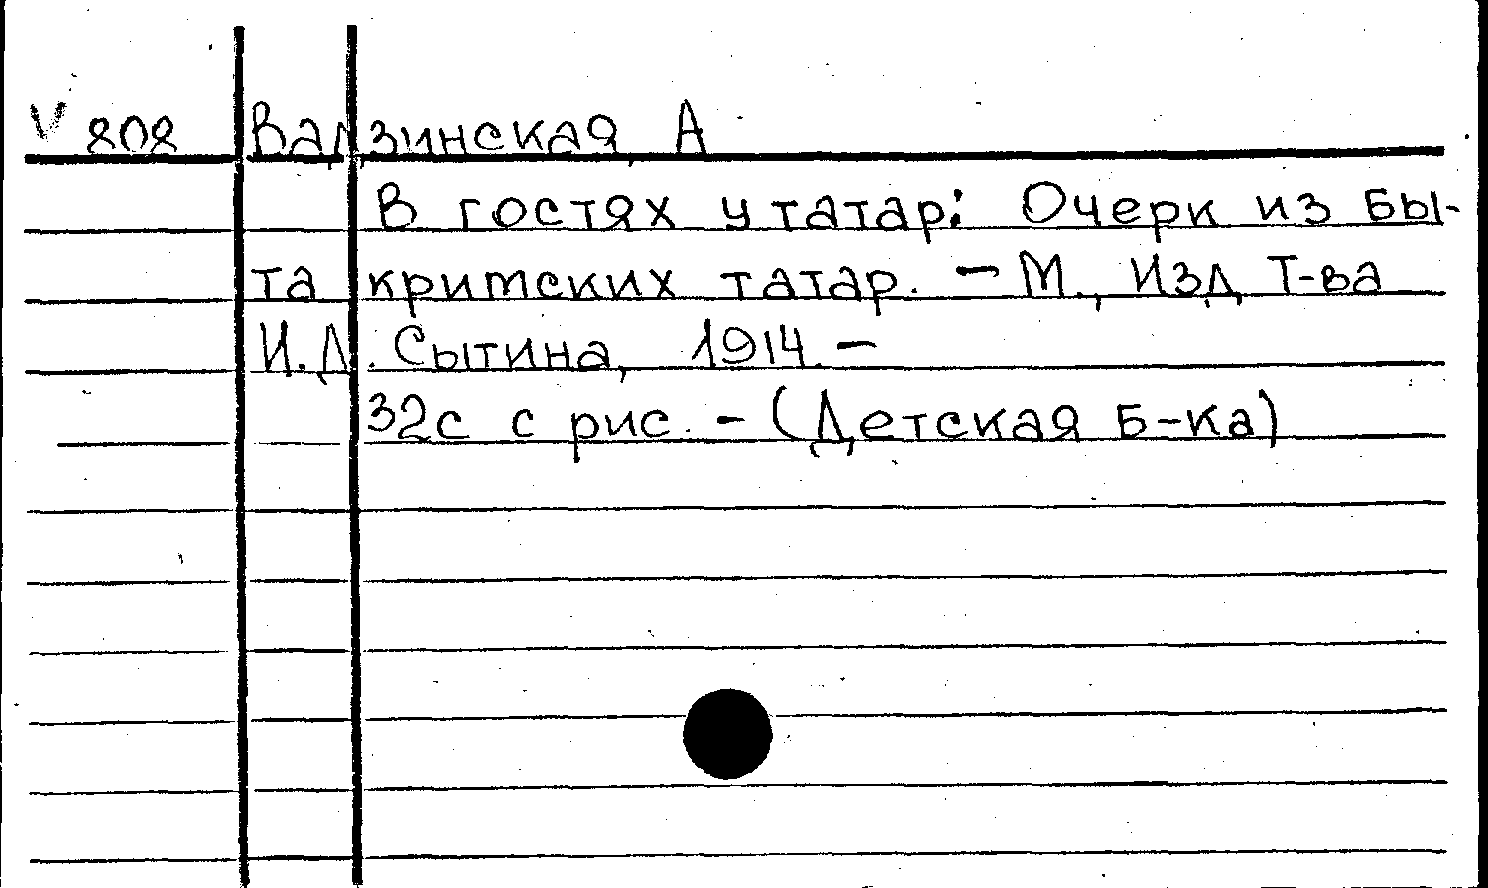 V 808 Вадзинская, А
В гостях у татар: Очерк из бы-
та критских татар. - М., Изд. Т-ва
И.Д. Сытина, 1914. -
32с с рис. - (Детская Б-ка)